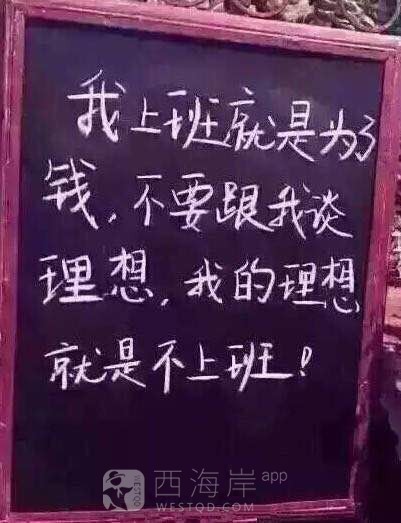 我上班就是为了
钱，不要跟我谈
理想，我的理想
就是不上班！
西海岸app
WESTQD.COM